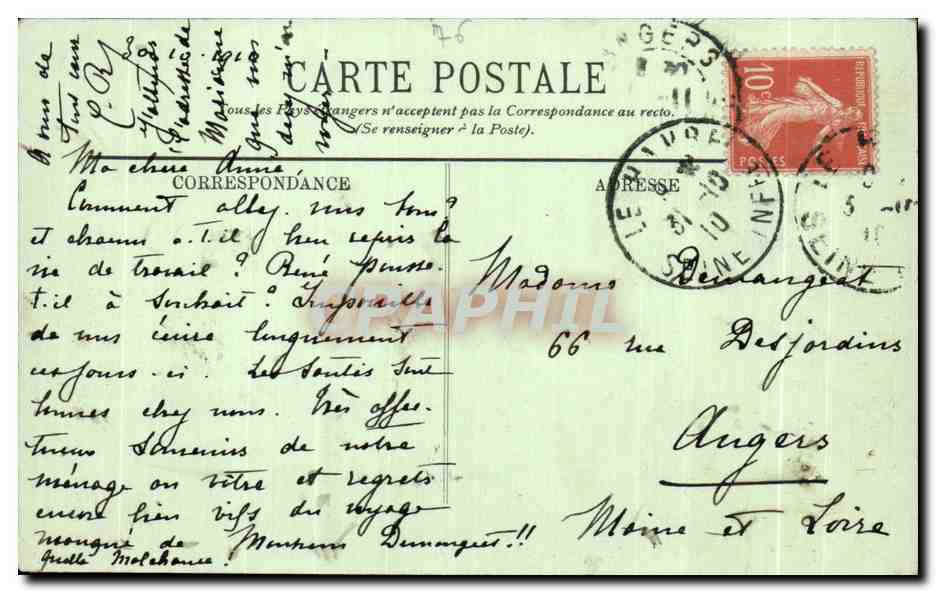 76
CARTE POSTALE
Tous les Pays étrangers n'acceptent pas la Correspondance au recto.
(Se renseigner à la Poste).
CORRESPONDANCE
ADRESSE
Ma chère Anne
Comment allez-vous tous?
et chacun a-t-il bien repris la
vie de travail? René pousse-
t-il à souhait? Impossible
de vous écrire longuement
ces jours-ci. Les santés sont
bonnes chez nous. Très affec-
tueux souvenirs de notre
ménage au vôtre et regrets
encore bien vifs du voyage
manqué de Monsieur Demangeat!!
quelle malchance!
à vous de
tous cœur
J'attends
l'adresse de
Marianne
que vos
Madame Demangeat
66 rue Desjardins
Angers
Maine et Loire
ANGERS
LE HAVRE
31 -10
10
SEINE INFRE
REPUBLIQUE FRANÇAISE
10c
POSTES
CPAPHIL